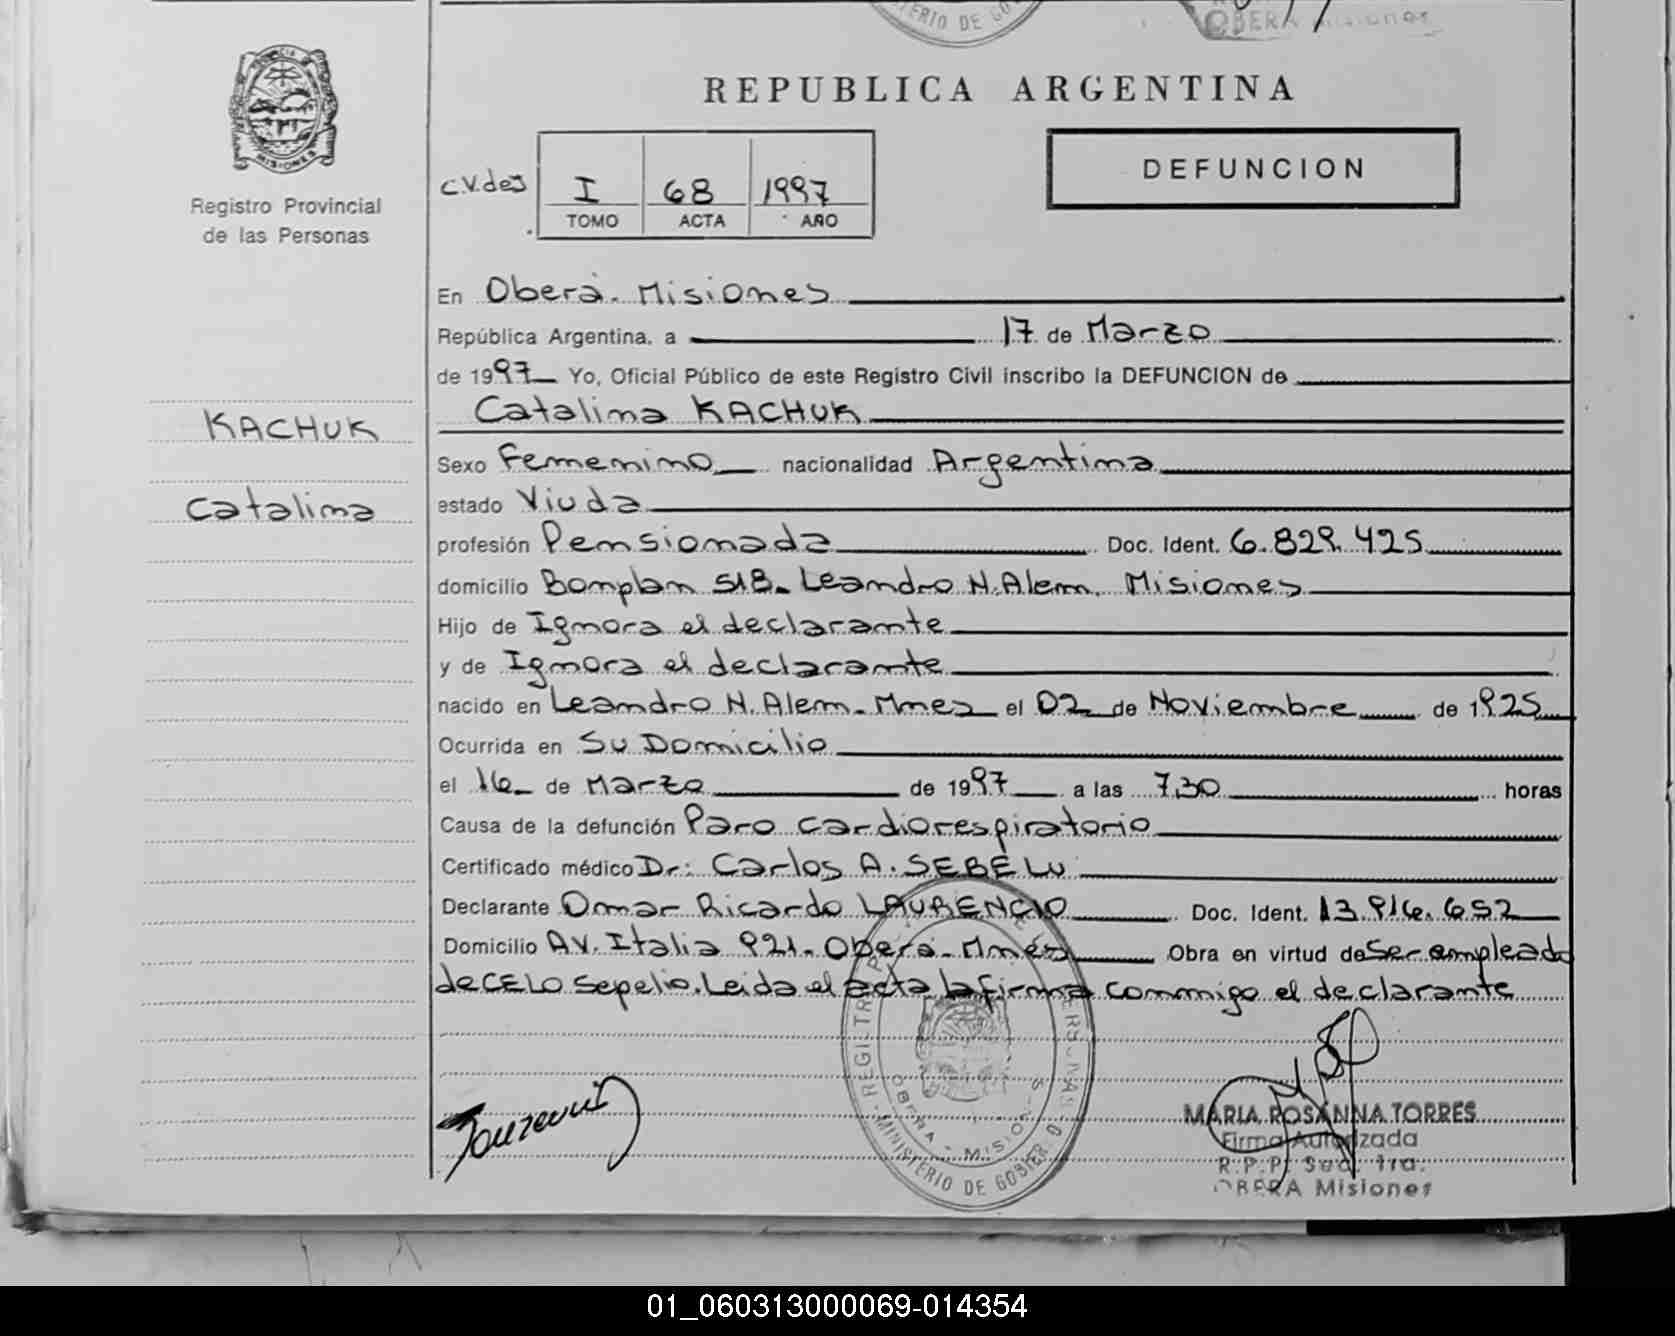 MINISTERIO DE GOBIERNO
OBERA Misiones
PROVINCIA
MISIONES
Registro Provincial
de las Personas
REPUBLICA ARGENTINA
DEFUNCION
C.V.des
I 68 1997
TOMO ACTA AÑO
En Oberá. Misiones
República Argentina, a 17 de Marzo
de 1997 Yo, Oficial Público de este Registro Civil inscribo la DEFUNCION de
Catalina KACHUK
KACHUK
Catalina
Sexo Femenino nacionalidad Argentina
estado Viuda
profesión Pensionada Doc. Ident. 6.829.425
domicilio Bomplan 518. Leandro N. Alem. Misiones
Hijo de Ignora el declarante
y de Ignora el declarante
nacido en Leandro N. Alem. Mnes el 02 de Noviembre de 1925
Ocurrida en Su Domicilio
el 16 de Marzo de 1997 a las 7,30 horas
Causa de la defunción Paro cardiorespiratorio
Certificado médico Dr: Carlos A. SEBELU
Declarante Omar Ricardo LAURENCIO Doc. Ident. 13.916.652
Domicilio AV. Italia 921. Oberá. Mnes Obra en virtud de Ser empleado
de CELO Sepelio. Leida el acta la firma conmigo el declarante
REGISTRO PROVINCIAL DE LAS PERSONAS
OBERA - MISIONES
MINISTERIO DE GOBIERNO
MARIA ROSANNA TORRES
Firma Autorizada
R.P.P. Sec. 1ra.
OBERA Misiones
01_060313000069-014354